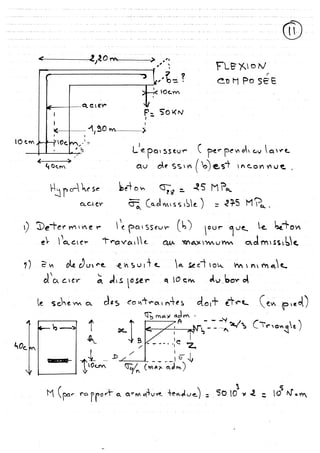 11
2,20 m
FLEXION
COMPOSÉE
b = ?
10 cm
acier
P = 50 KN
1,90 m
10 cm
10 cm
40 cm
L'épaisseur (perpendiculaire
au dessin (b) est inconnue.
Hypothèse béton σ28 = 25 MPa
acier σs (admissible) = 275 MPa.
1) Déterminer l'épaisseur (b) pour que le béton
et l'acier travaille au maximum admissible
2) En déduire ensuite la section minimale
d'acier à disposer à 10 cm du bord
le schéma des contraintes doit être (en pied)
σb max adm.
b
A
x
x/3 (Triangle)
Nb
40c m
B
C
Z
D
10cm
(max adm)
M (par rapport a armature tendue) = 50 10³ x 2 = 10⁵ N.m